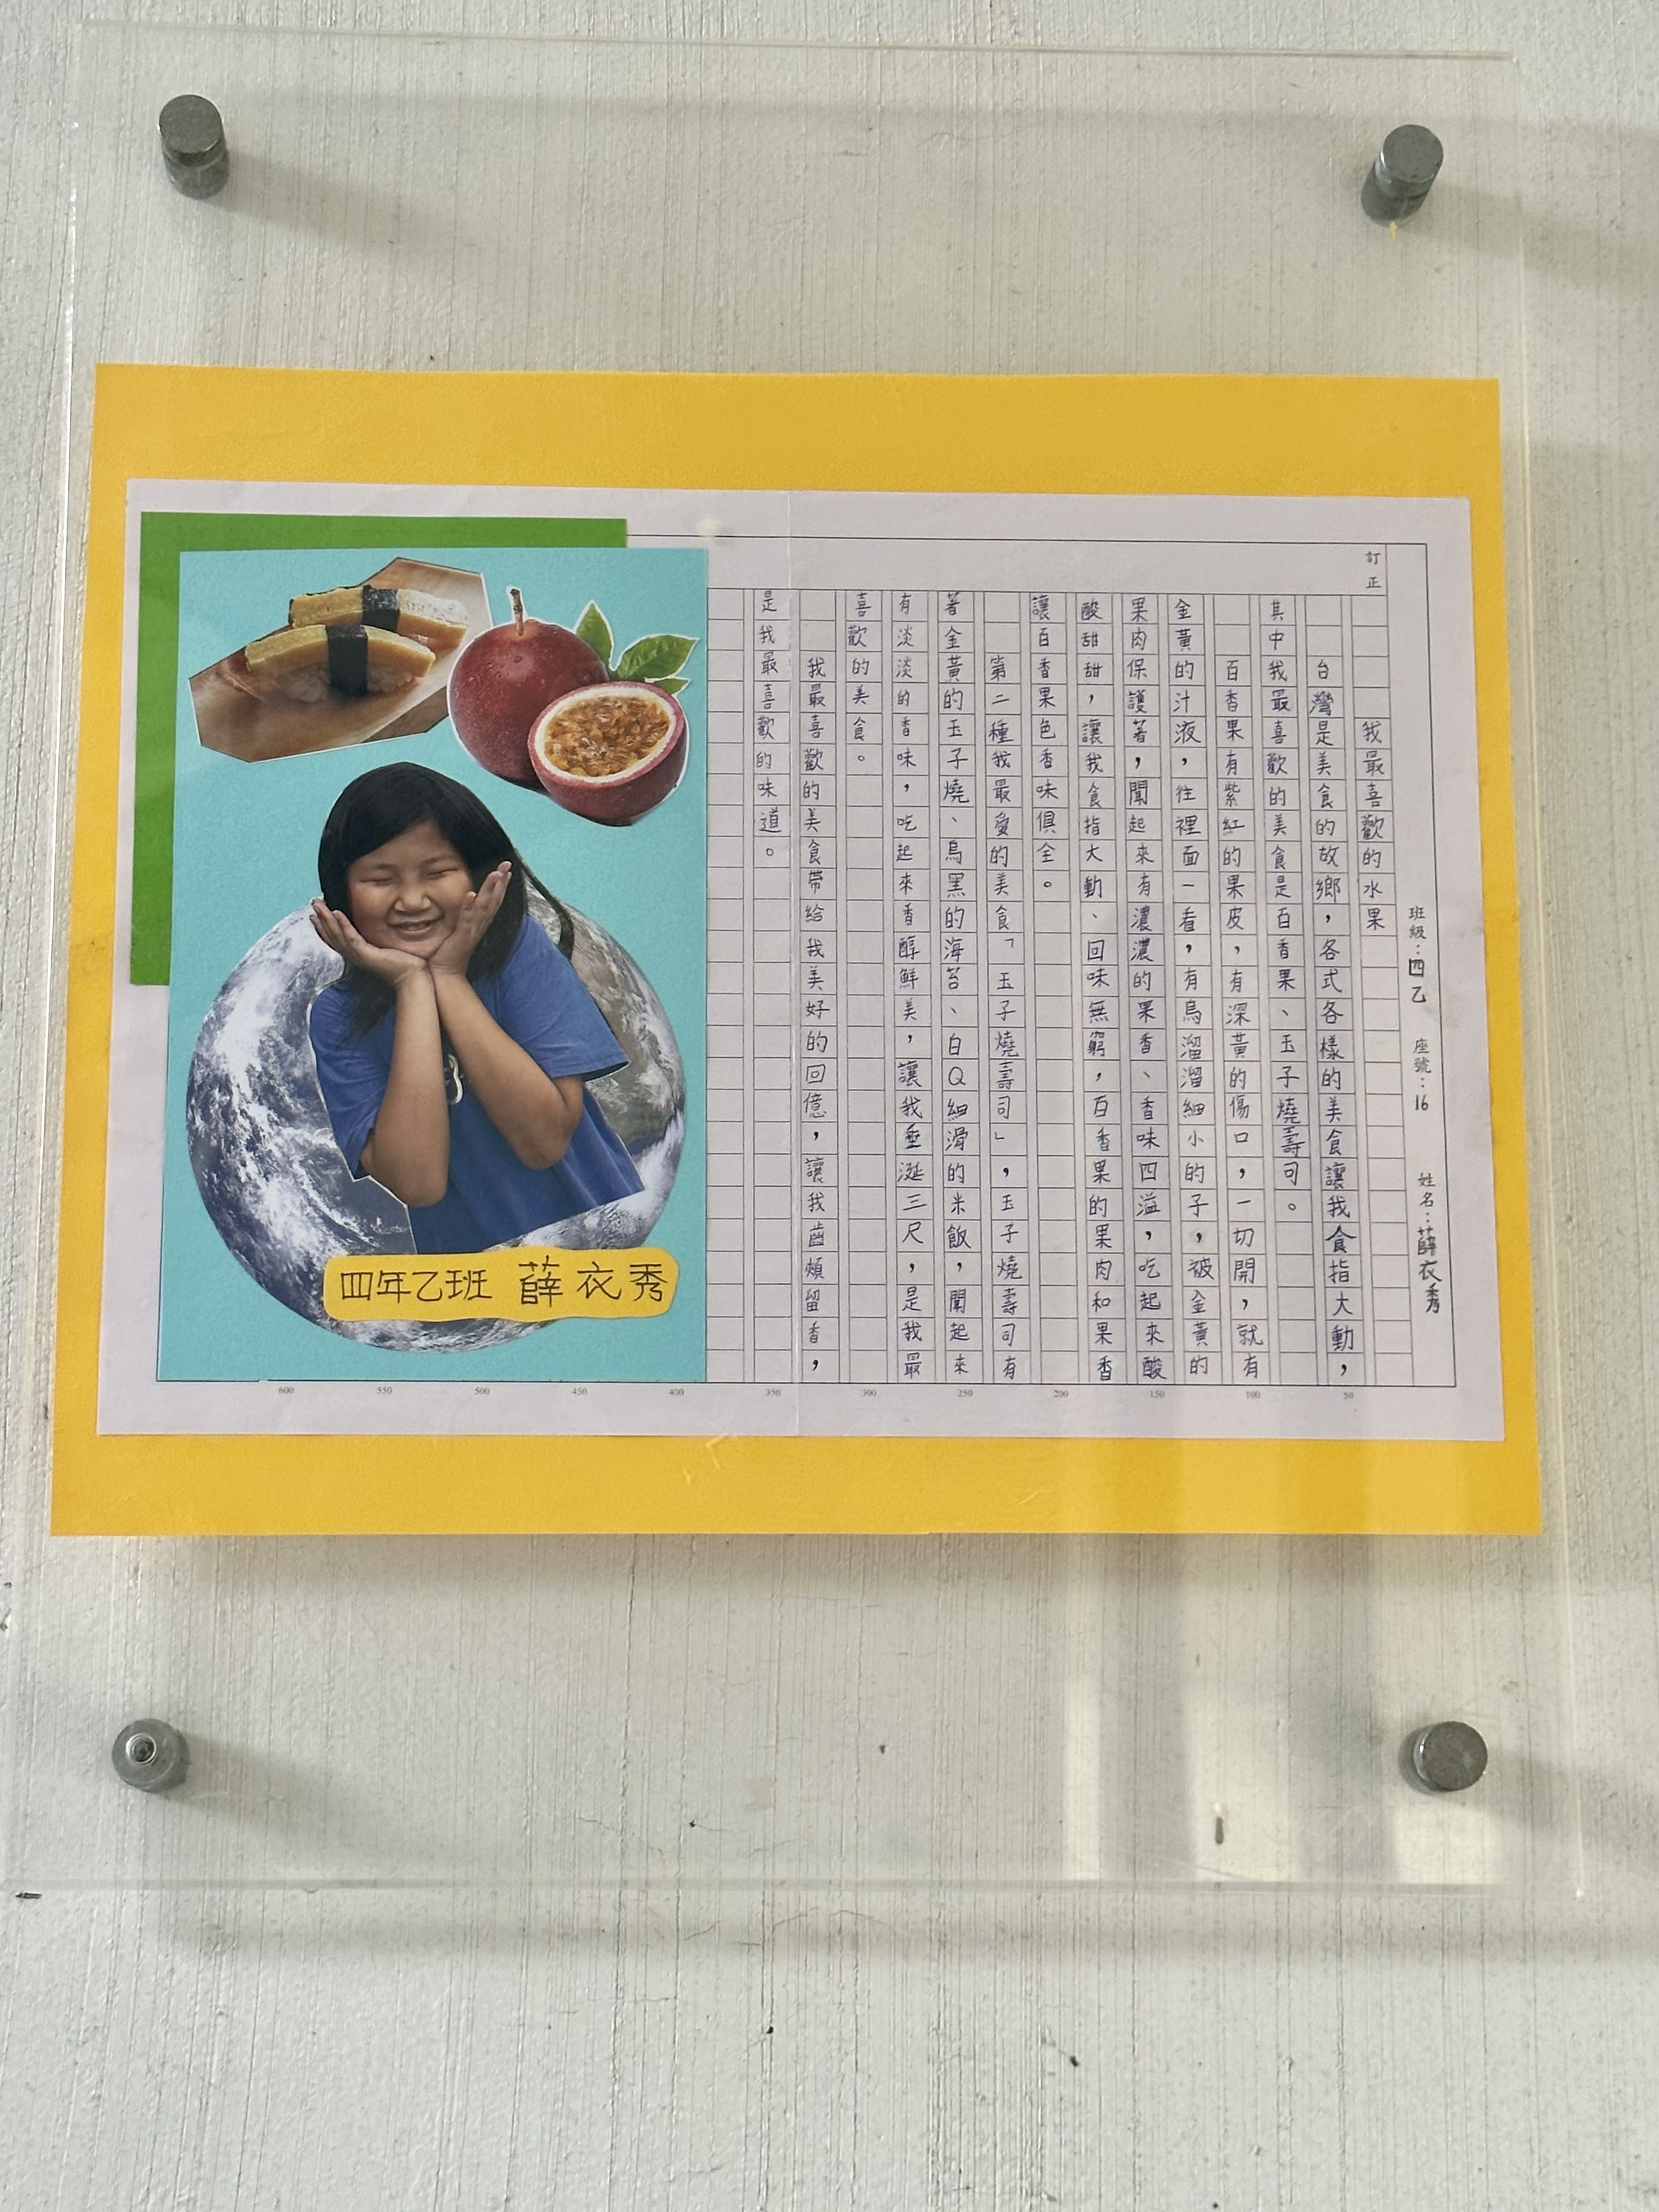 訂正
班級：四乙 座號：16 姓名：薛衣秀
我最喜歡的水果
台灣是美食的故鄉，各式各樣的美食讓我食指大動，
其中我最喜歡的美食是百香果、玉子燒壽司。
百香果有紫紅的果皮，有深黃的傷口，一切開，就有
金黃的汁液，往裡面一看，有烏溜溜細小的子，被金黃的
果肉保護著，聞起來有濃濃的果香、香味四溢，吃起來酸
酸甜甜，讓我食指大動、回味無窮，百香果的果肉和果香
讓百香果色香味俱全。
第二種我最愛的美食「玉子燒壽司」，玉子燒壽司有
著金黃的玉子燒、烏黑的海苔、白Q細滑的米飯，聞起來
有淡淡的香味，吃起來香醇鮮美，讓我垂涎三尺，是我最
喜歡的美食。
我最喜歡的美食帶給我美好的回億，讓我齒頰留香，
是我最喜歡的味道。
600 550 500 450 400 350 300 250 200 150 100 50
四年乙班 薛衣秀